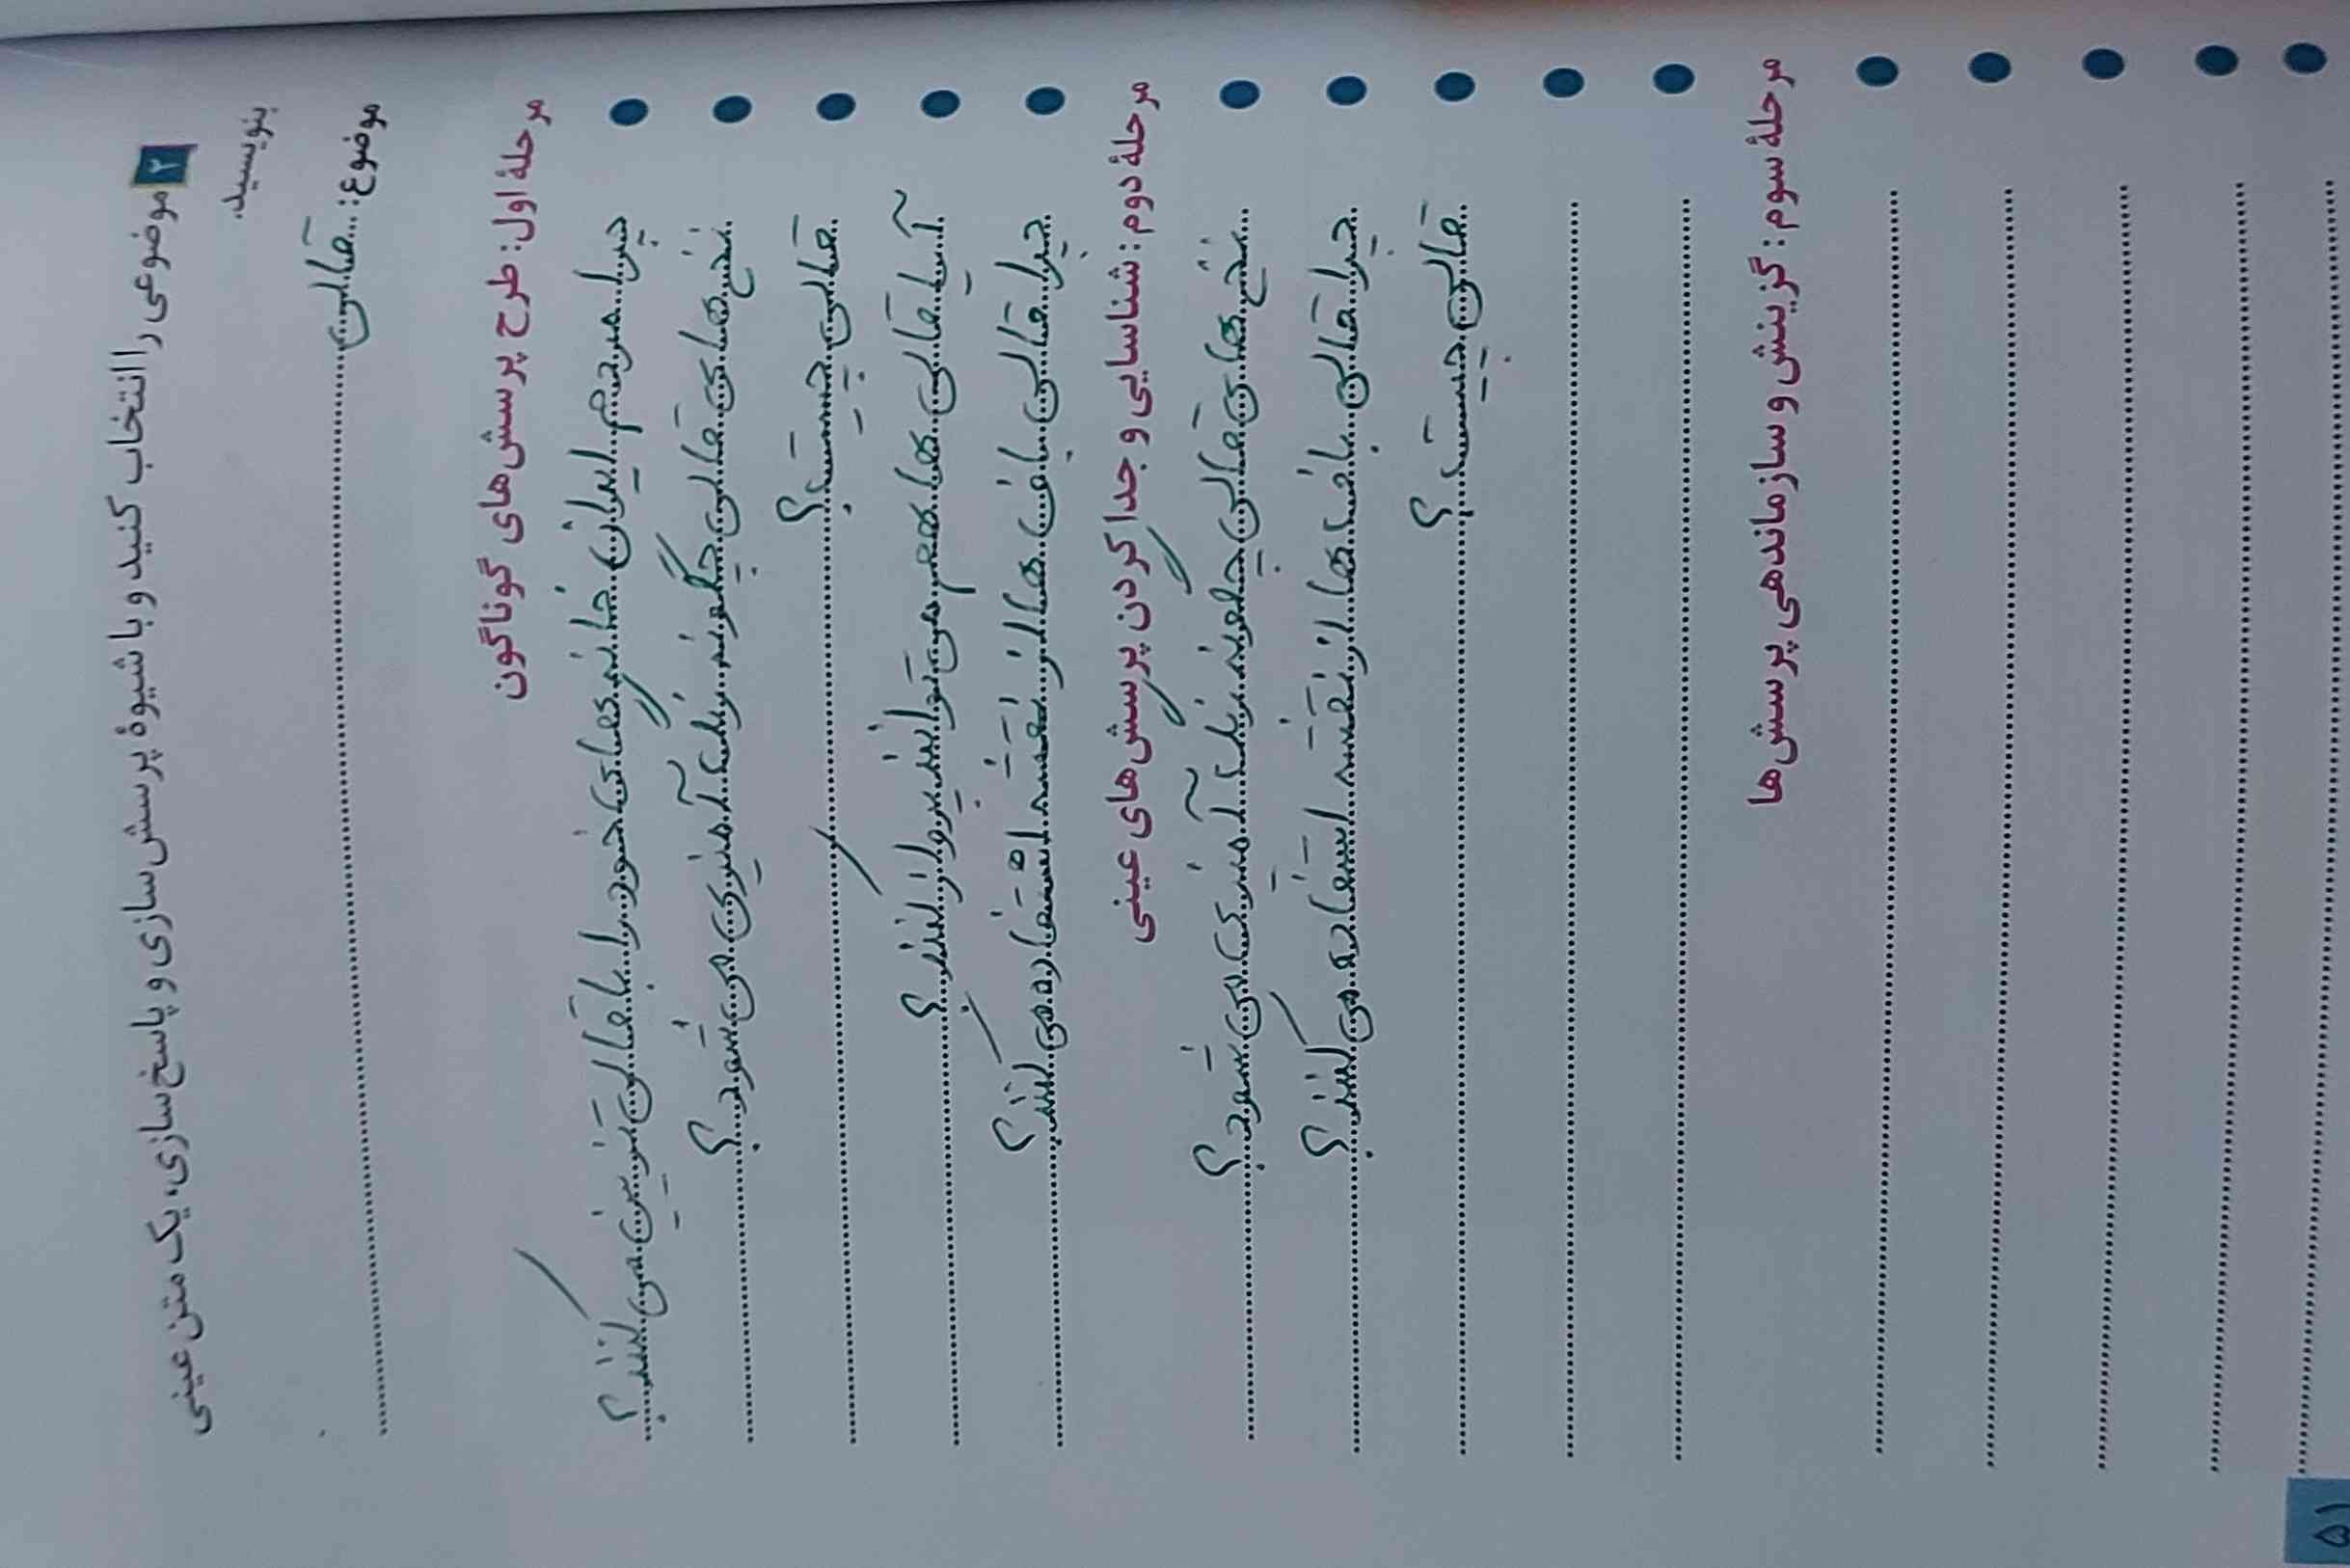 ۲ موضوعی را انتخاب کنید و با شیوهٔ پرسش سازی و پاسخ سازی، یک متن عینی
بنویسید.
موضوع: قالی
مرحلهٔ اول: طرح پرسش‌های گوناگون
چرا مردم ایران خانه‌های خود را با قالی تزیین می‌کنند؟
نخ‌های قالی چگونه رنگ آمیزی می‌شود؟
قالی چیست؟
آیا قالی‌ها هم می‌توانند پرواز کنند؟
چرا قالی باف‌ها از نقشه استفاده می‌کنند؟
مرحلهٔ دوم: شناسایی و جدا کردن پرسش‌های عینی
نخ‌های قالی چگونه رنگ آمیزی می‌شود؟
چرا قالی باف‌ها از نقشه استفاده می‌کنند؟
قالی چیست؟
مرحلهٔ سوم: گزینش و سازماندهی پرسش‌ها
۵۱